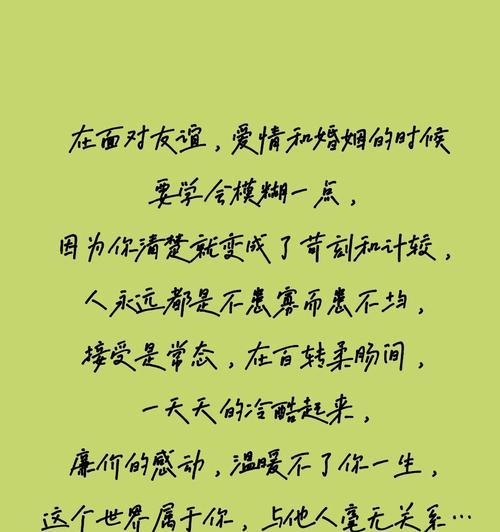 在面对友谊，爱情和婚姻的时候
要学会模糊一点，
因为你清楚就变成了苛刻和计较，
人永远都是不患寡而患不均，
接受是常态，在百转柔肠间，
一天天的冷酷起来，
廉价的感动，温暖不了你一生，
这个世界属于你，与他人毫无关系…